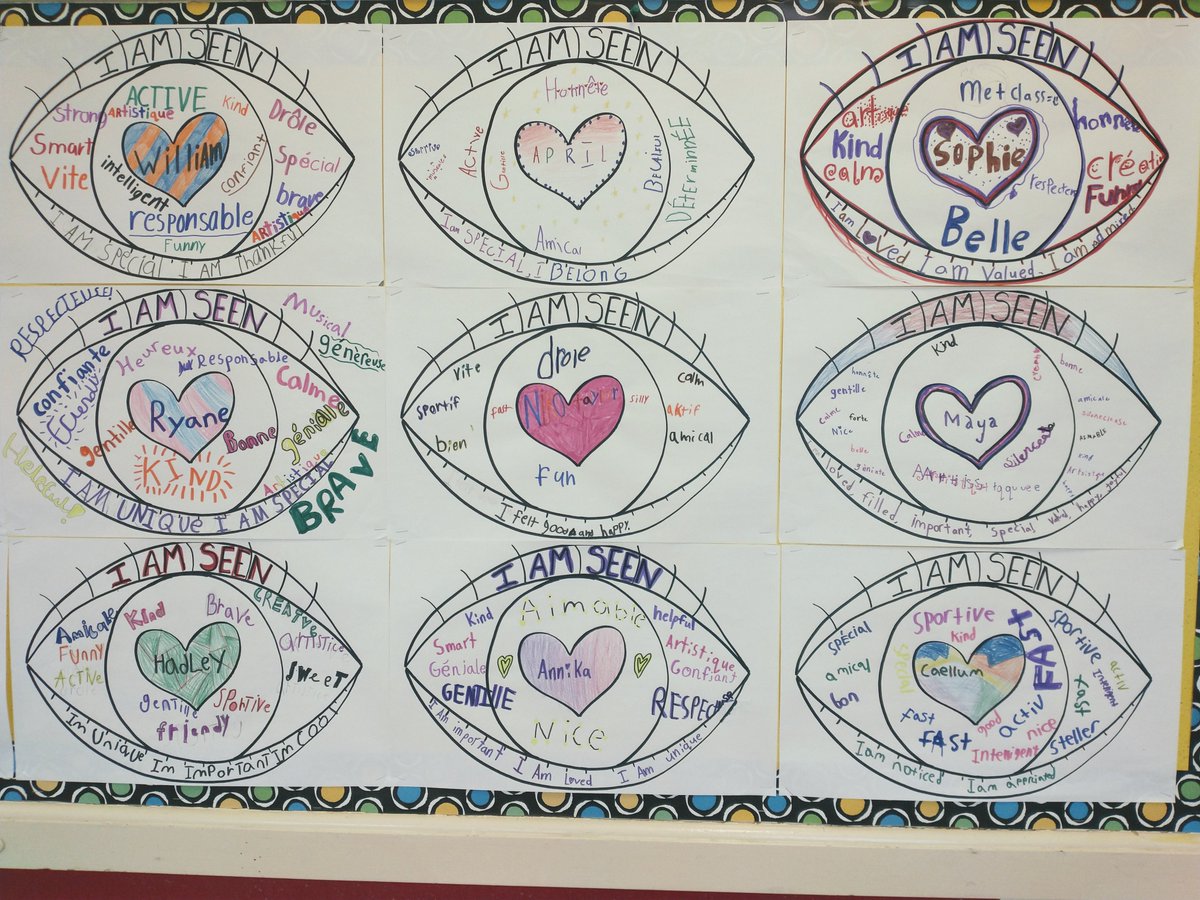 I AM SEEN
ACTIVE
Kind
Strong
ARtistique
Drôle
Smart
William
confiant
Spécial
Vite
intelligent
brave
responsable
ARtistique
Funny
I AM Special I AM Thankful
I AM SEEN
Honnête
Active
APRIL
DÉTERMINNÉE
Amical
I am SPECIAL, I BELONG
I AM SEEN
Met classe
Kind
Sophie
calm
respecter
Funny
Belle
I am Loved I am Valued. I am admired
I AM SEEN
RESPECTEUSE!
Musical
Heureux
Responsable
génèreuse
confiante
Calme
Friendly
Ryane
géniale
gentille
Bonne
KIND
Artistique
Helpful!
BRAVE
I AM UNIQUE I AM SPECIAL
I AM SEEN
drole
vite
calm
sportif
fast
silly
aktif
bien
amical
Fun
I felt good and happy.
I AM SEEN
kind
bonne
honnête
gentille
amicale
calme
forte
Maya
Silencieuse
Nice
Calme
belle
kind
Artistique
loved, filled, important, special, valid, happy, joyful
I AM SEEN
Amicale
Kind
Brave
CREATVE
Funny
artistice
HADLEY
Active
sweet
gentille
SPORtive
friendy
Im Unique Im Important Im COOl
I AM SEEN
Kind
Aimable
helpful
Smart
Artistique
Géniale
Annika
Confiant
GENTILLE
Nice
I Am important I Am Loved I Am unique
I AM SEEN
Sportive
Fast
SPÉCIAL
kind
Sportive
amical
special
Caellum
activ
bon
fast
good
activ
fast
nice
FAST
Inteligent
Steller
I am noticed I am appriated